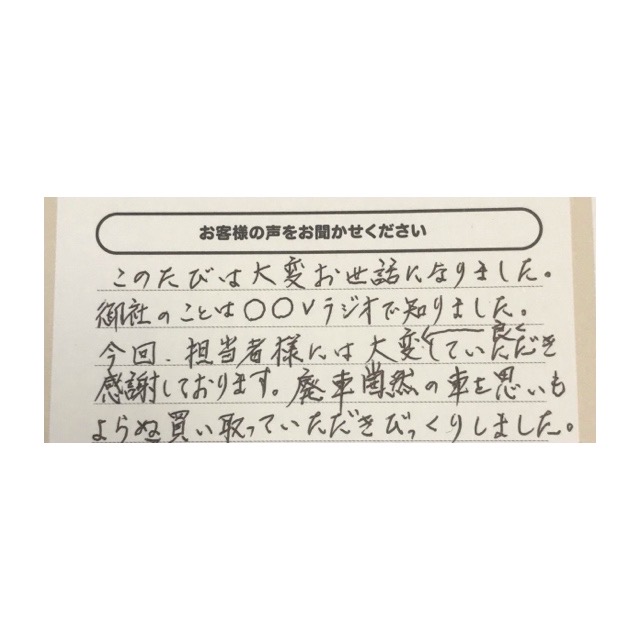 お客様の声をお聞かせください
このたびは大変お世話になりました。
御社のことは〇〇Vラジオで知りました。
今回、担当者様には大変良くしていただき
感謝しております。廃車当然の車を思いも
よらぬ買い取っていただきびっくりしました。